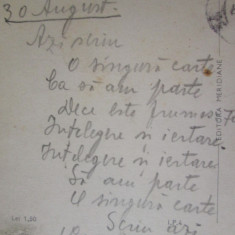 30 August.
Azi scriu
O singură carte
Ca să am parte
Dece este frumoasă
Înțelegere și iertare
Înțelegere și iertare
Să am parte
O singură carte
Scriu azi
EDITURA MERIDIANE
Lei 1,50